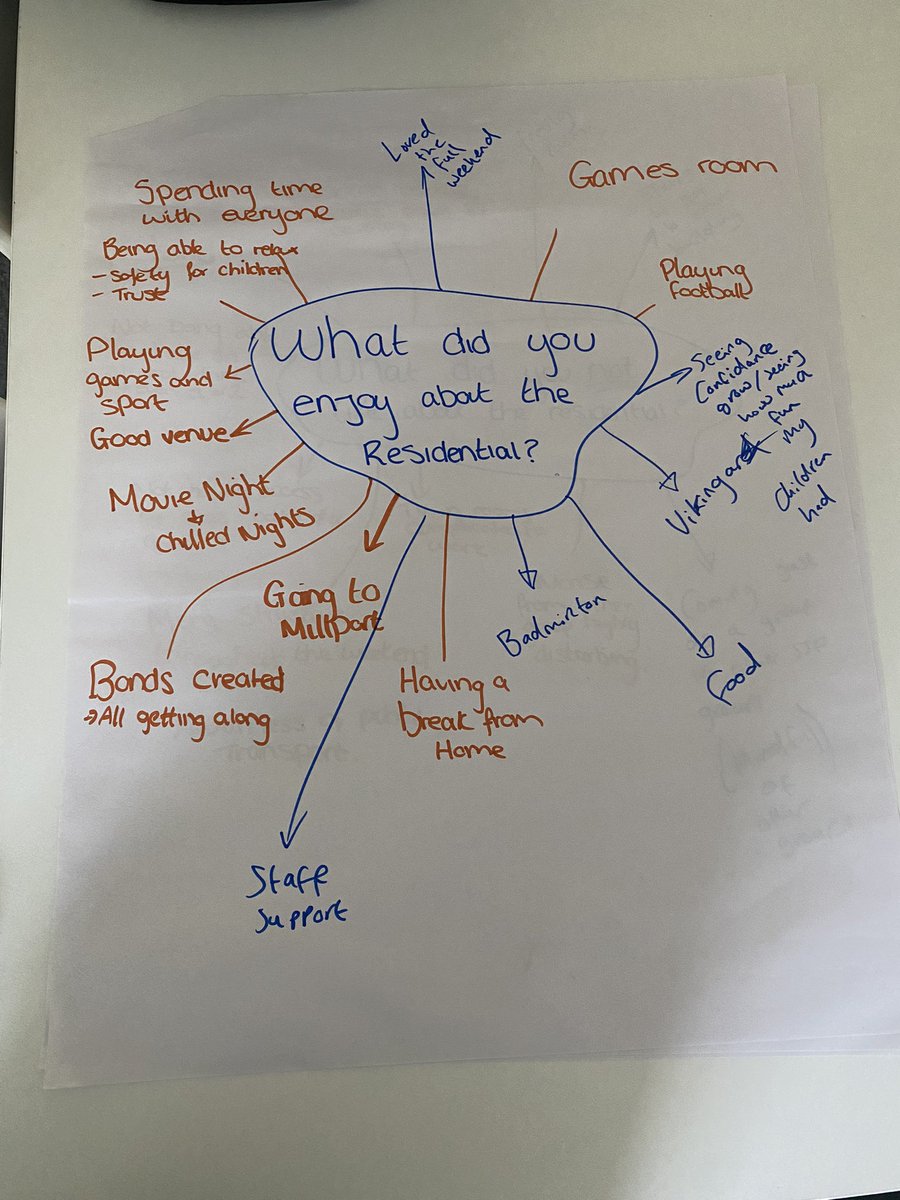 What did you
enjoy about the
Residential?
Loved
the
full
weekend
Games room
Playing
football
Seeing
Confidance
grow/seeing
how much
fun
my
Children
had
Vikingar
Food
Badminton
Having a
break from
Home
Staff
support
Going to
Millport
Bonds created
→ All getting along
Movie Night
+
Chilled Nights
Good venue
Playing
games and
sport
Being able to relax
- Safety for children
- Trust
Spending time
with everyone